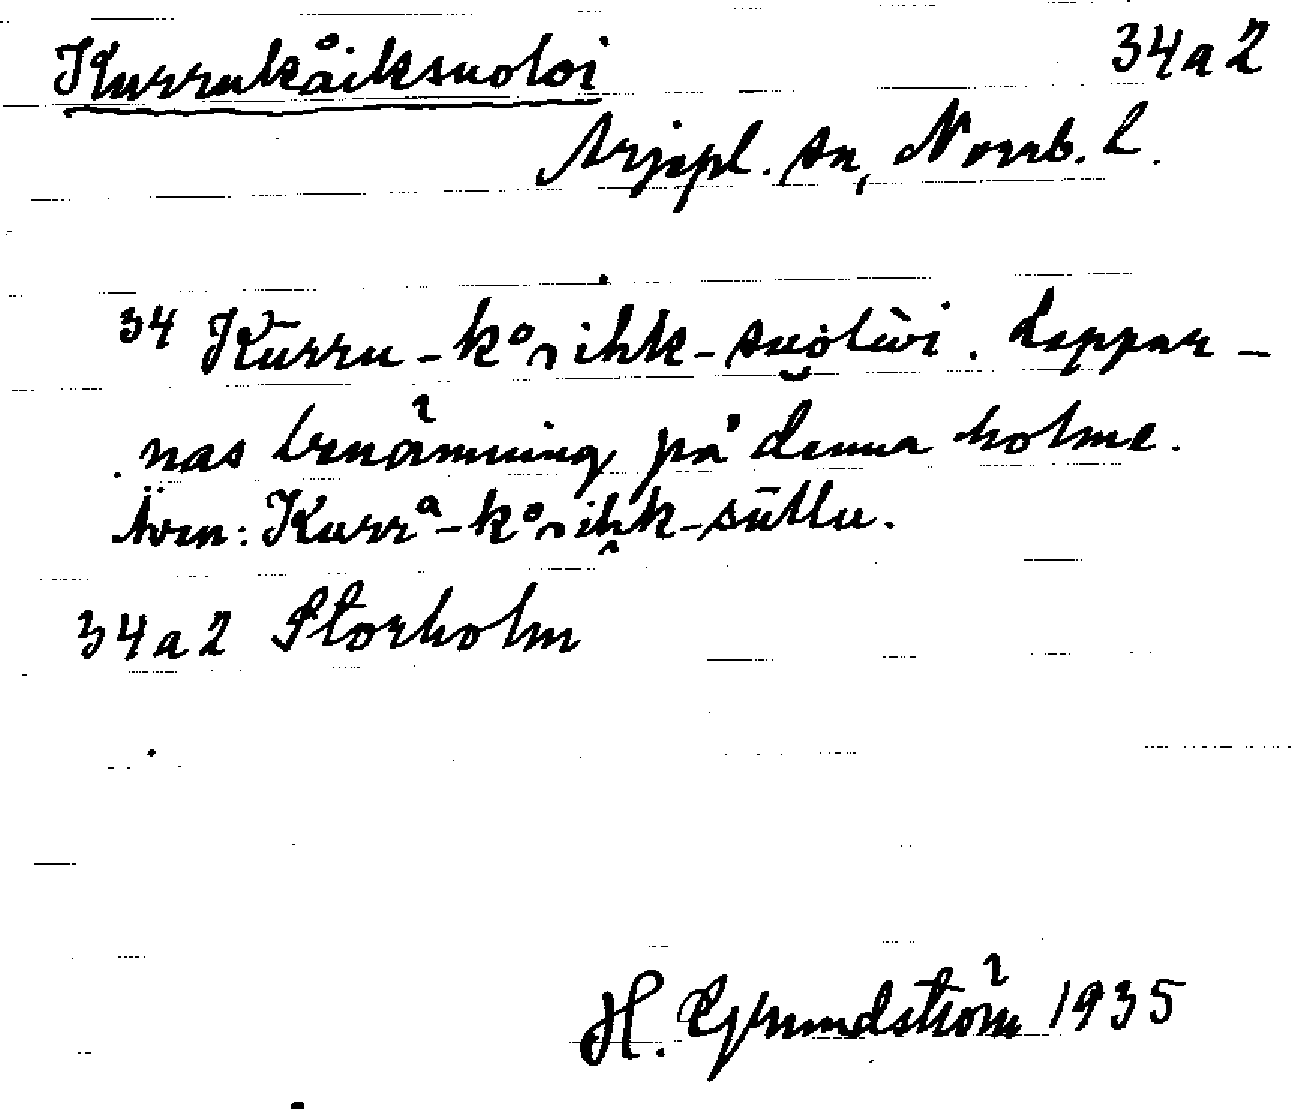 Kurrukåiksuoloi 34a2
Arjepl. sn, Norrb. l.
34 Kūrru-kᵒ̀ihk-suolui. Lappar-
nas benämning på denna holme.
Även: Kurrᵃ-kᵒ̀ihk-sūllu.
34a2 Storholm
H. Grundström 1935